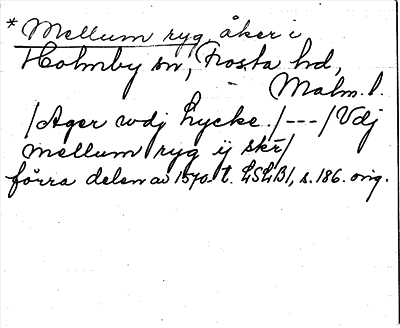 * Mellum ryg, åker i
Holmby sn, Frosta hd,
Malm. l.
/Ager wdj Lycke./---/Vdj
mellum ryg ij skr/
förra delen av 1570-t. LSLB1, s. 186. orig.